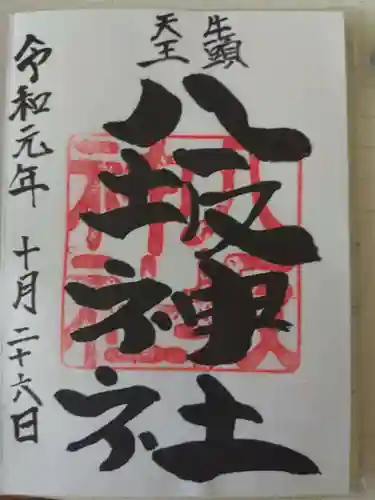 牛頭
天王
八坂神社
令和元年 十月二十六日
八坂神社